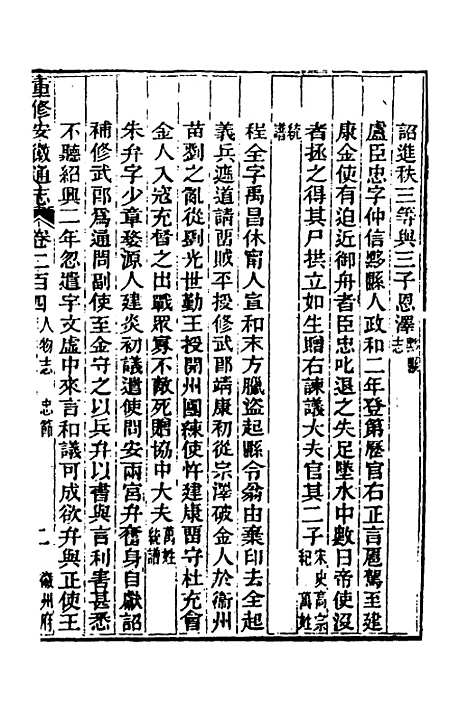 詔進秩三等與三子恩澤黟縣志
盧臣忠字仲信黟縣人政和二年登第歷官右正言扈駕至建
康金使有迫近御舟者臣忠叱退之失足墜水中數日帝使沒
者拯之得其尸拱立如生贈右諫議大夫官其二子宋史高宗紀 萬姓
統譜
程全字禹昌休甯人宣和末方臘盜起縣令翁由棄印去全起
義兵遮道請留賊平授修武郎靖康初從宗澤破金人於衞州
苗劉之亂從劉光世勤王授開州團練使忤建康留守杜充會
金人入寇充督之出戰眾寡不敵死贈協中大夫萬姓統譜
朱弁字少章婺源人建炎初議遣使問安兩宮弁奮身自獻詔
補修武郎為通問副使至金守之以兵弁以書與言利害甚悉
不聽紹興二年忽遣宇文虛中來言和議可成欲弁與正使王
重修安徽通志 卷二百四 人物志 忠節 二 徽州府